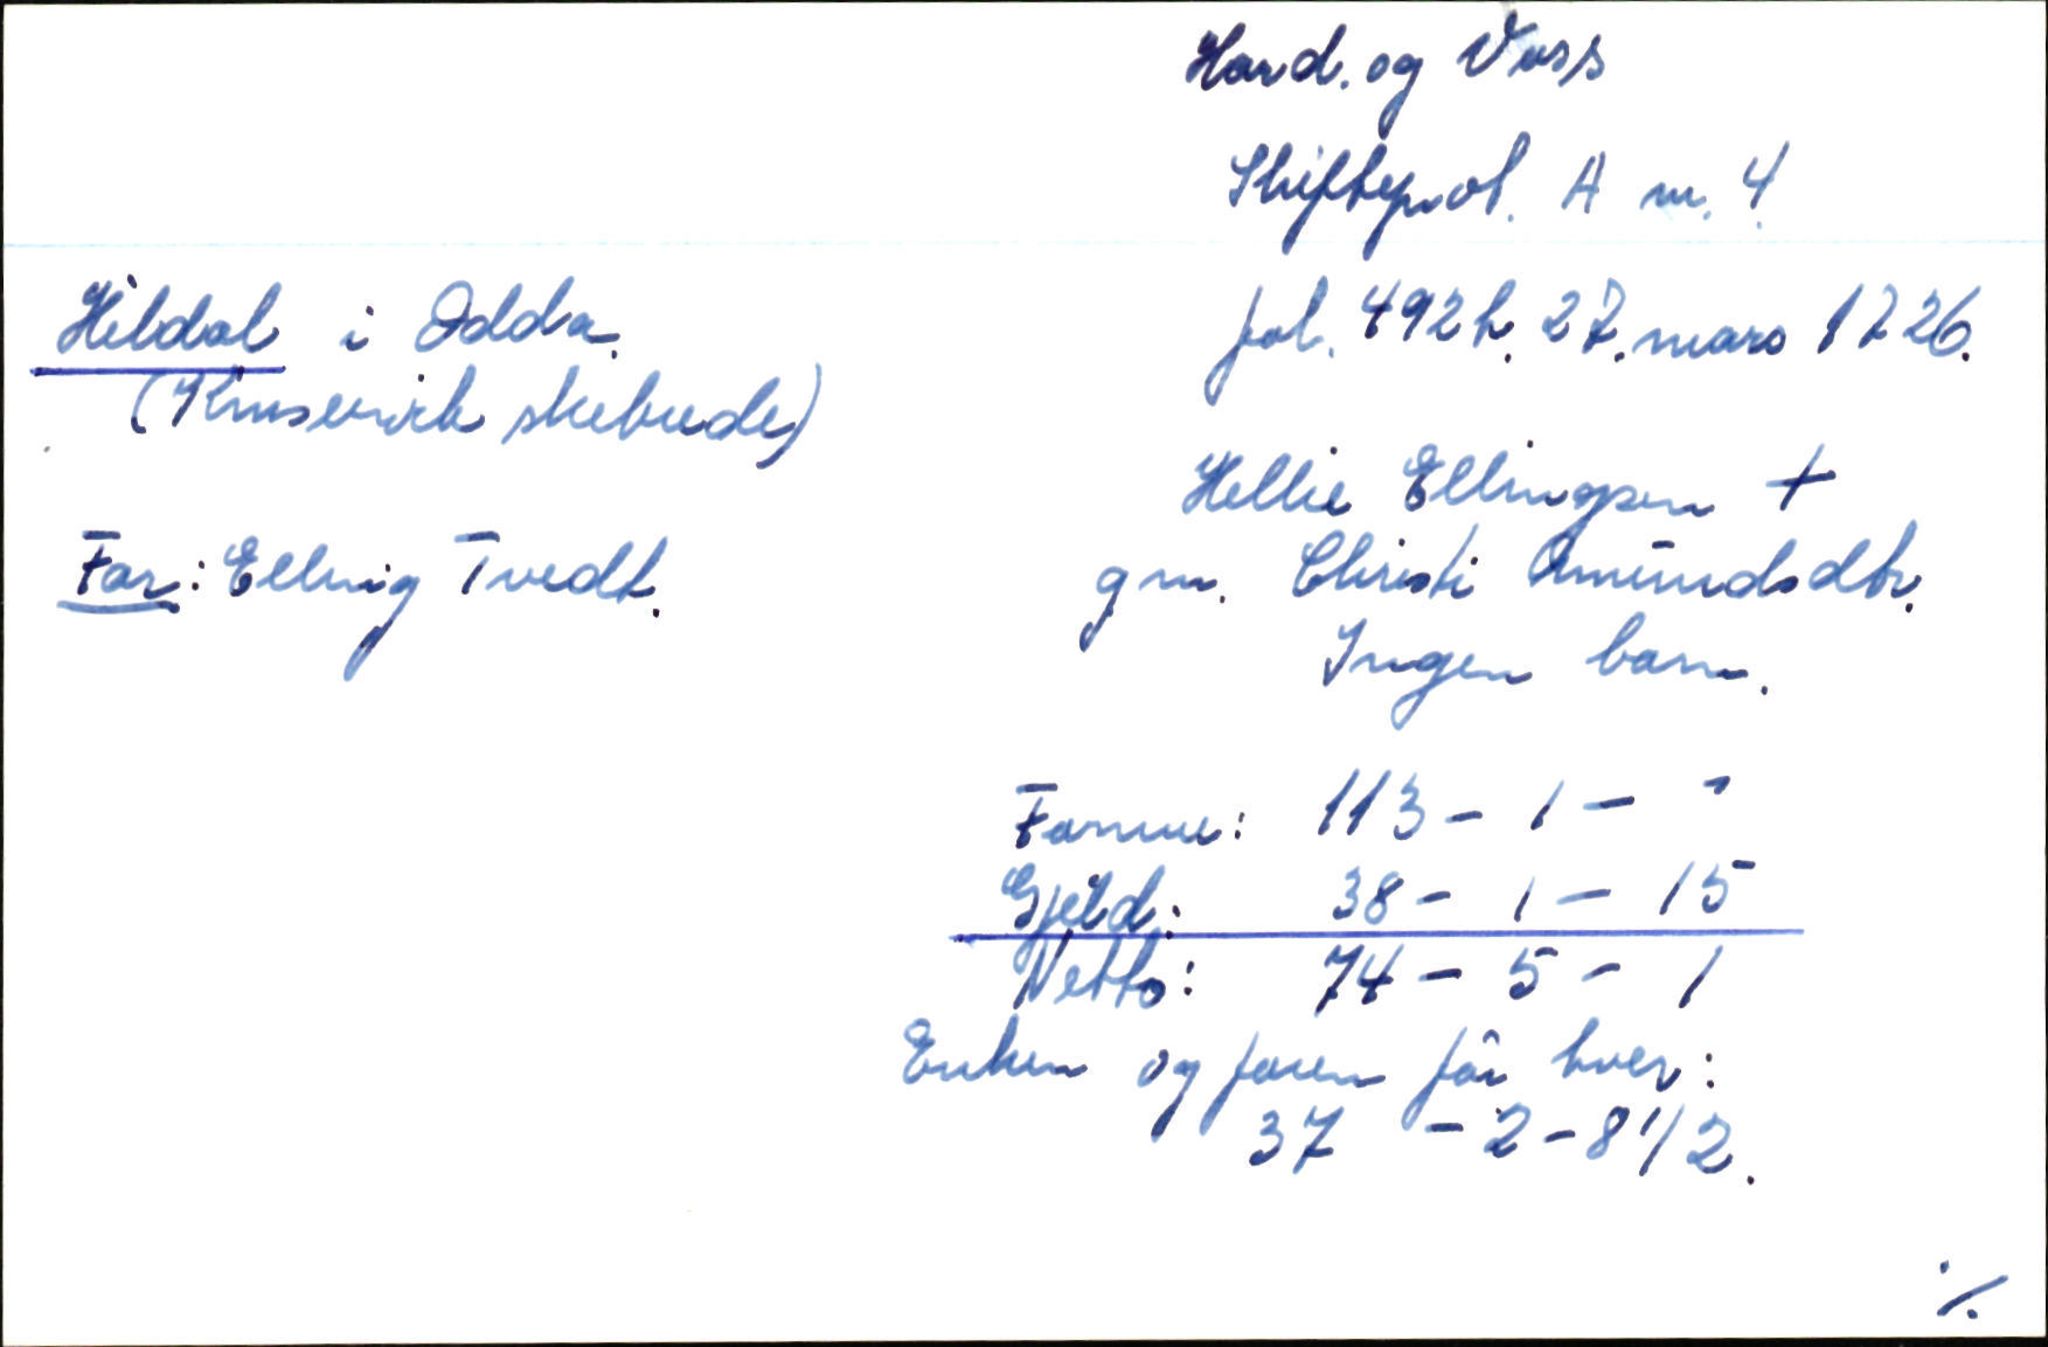 Hard. og Voss
Skifteprot. A nr. 4.
Hildal i Odda.
fol. 492b. 27. mars 1726.
(Kinservik skibrede)
Hellie Ellingsen +
Far: Elling Tvedt.
gm. Christi Amundsdtr.
Ingen barn.
Formue: 113 - 1 - "
Gjeld: 38 - 1 - 15
Netto: 74 - 5 - 1
Enken og faren får hver:
37 - 2 - 8 1/2.
./.